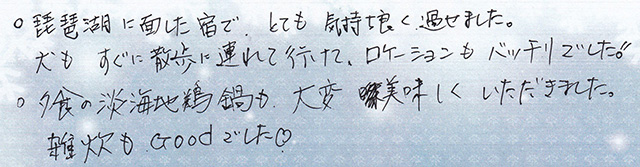 ○琵琶湖に面した宿で、とても気持ち良く過せました。
犬もすぐに散歩に連れて行けて、ロケーションもバッチリでした!!
○夕食の淡海地鶏鍋も、大変美味しくいただきました。
雑炊もGoodでした♡